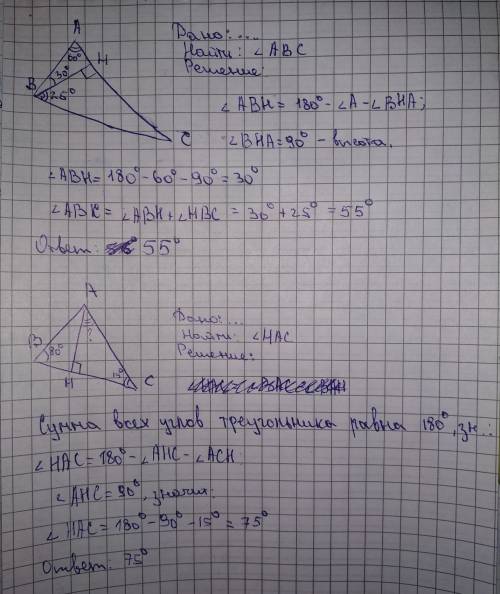 A
60°
H
30°
B
25°
C
Дано: ...
Найти: ∠ABC
Решение:
∠ABH = 180° - ∠A - ∠BHA;
∠BHA = 90° - высота.
∠ABH = 180° - 60° - 90° = 30°
∠ABC = ∠ABH + ∠HBC = 30° + 25° = 55°
Ответ: 55°
A
?
B
80°
H
15°
C
Дано: ...
Найти: ∠HAC
Решение:
Сумма всех углов треугольника равна 180°, зн.:
∠HAC = 180° - ∠AHC - ∠ACH
∠AHC = 90°, значит:
∠HAC = 180° - 90° - 15° = 75°
Ответ: 75°